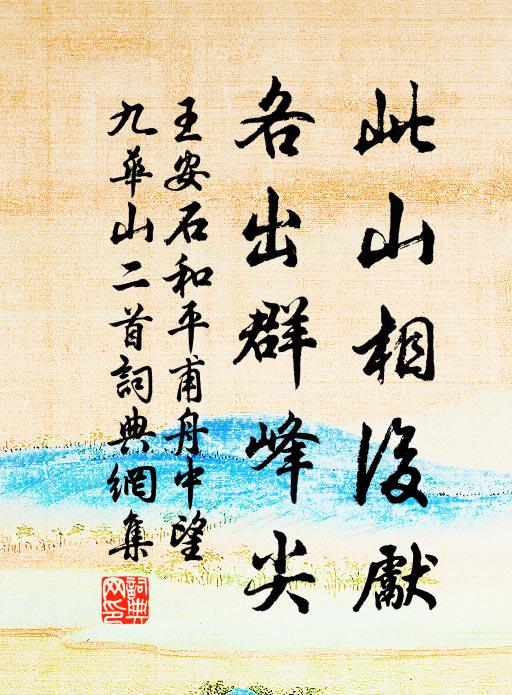 此山相後獻
各出群峰尖
王安石和平甫舟中望
九華山二首詞典網集
詞典
网印